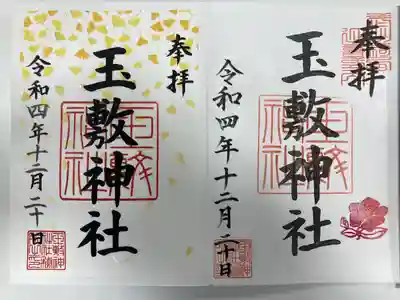 奉拝
玉敷神社
令和四年十二月二十日
奉拝
玉敷神社
令和四年十二月二十日